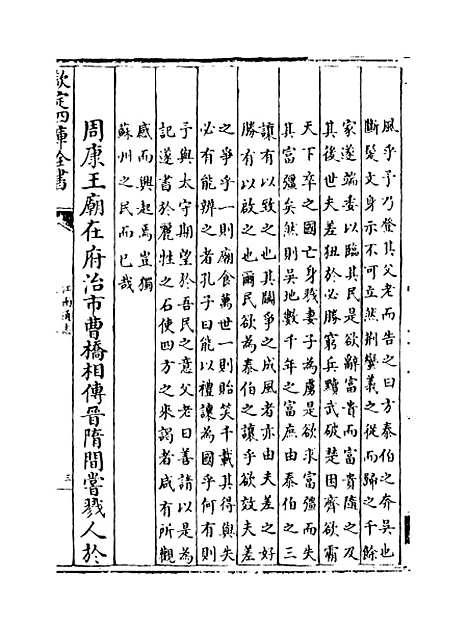 風乎予乃詹其父老而告之曰方泰伯之奔吳也
斷髪文身示不可立然荆蠻義之従而歸之千餘
家遂端委以臨其民是欲辭富貴而富貴隨之及
其後世夫差狃於必勝窮兵黷武破楚困齊欲霸
天下卒之國亡身戮妻子為虜是欲求富彊而失
其富彊矣然則吳地數千年之富庶由泰伯之三
讓有以致之也其鬭爭之成風者亦由夫差之好
勝有以啟之也爾民欲為泰伯之讓乎欲效夫差
之爭乎一則廟食萬世一則貽笑千載其得與失
必有能辨之者孔子曰能以禮讓為國乎何有則
予與太守期望於吾民之意父老曰善請以是為
記遂書於麗牲之石使四方之來謁者咸有所觀
感而興起焉豈獨
蘇州之民而已哉
周康王廟在府治市曹橋相傳晉隋間嘗戮人於
欽定四庫全書
江南通志
三